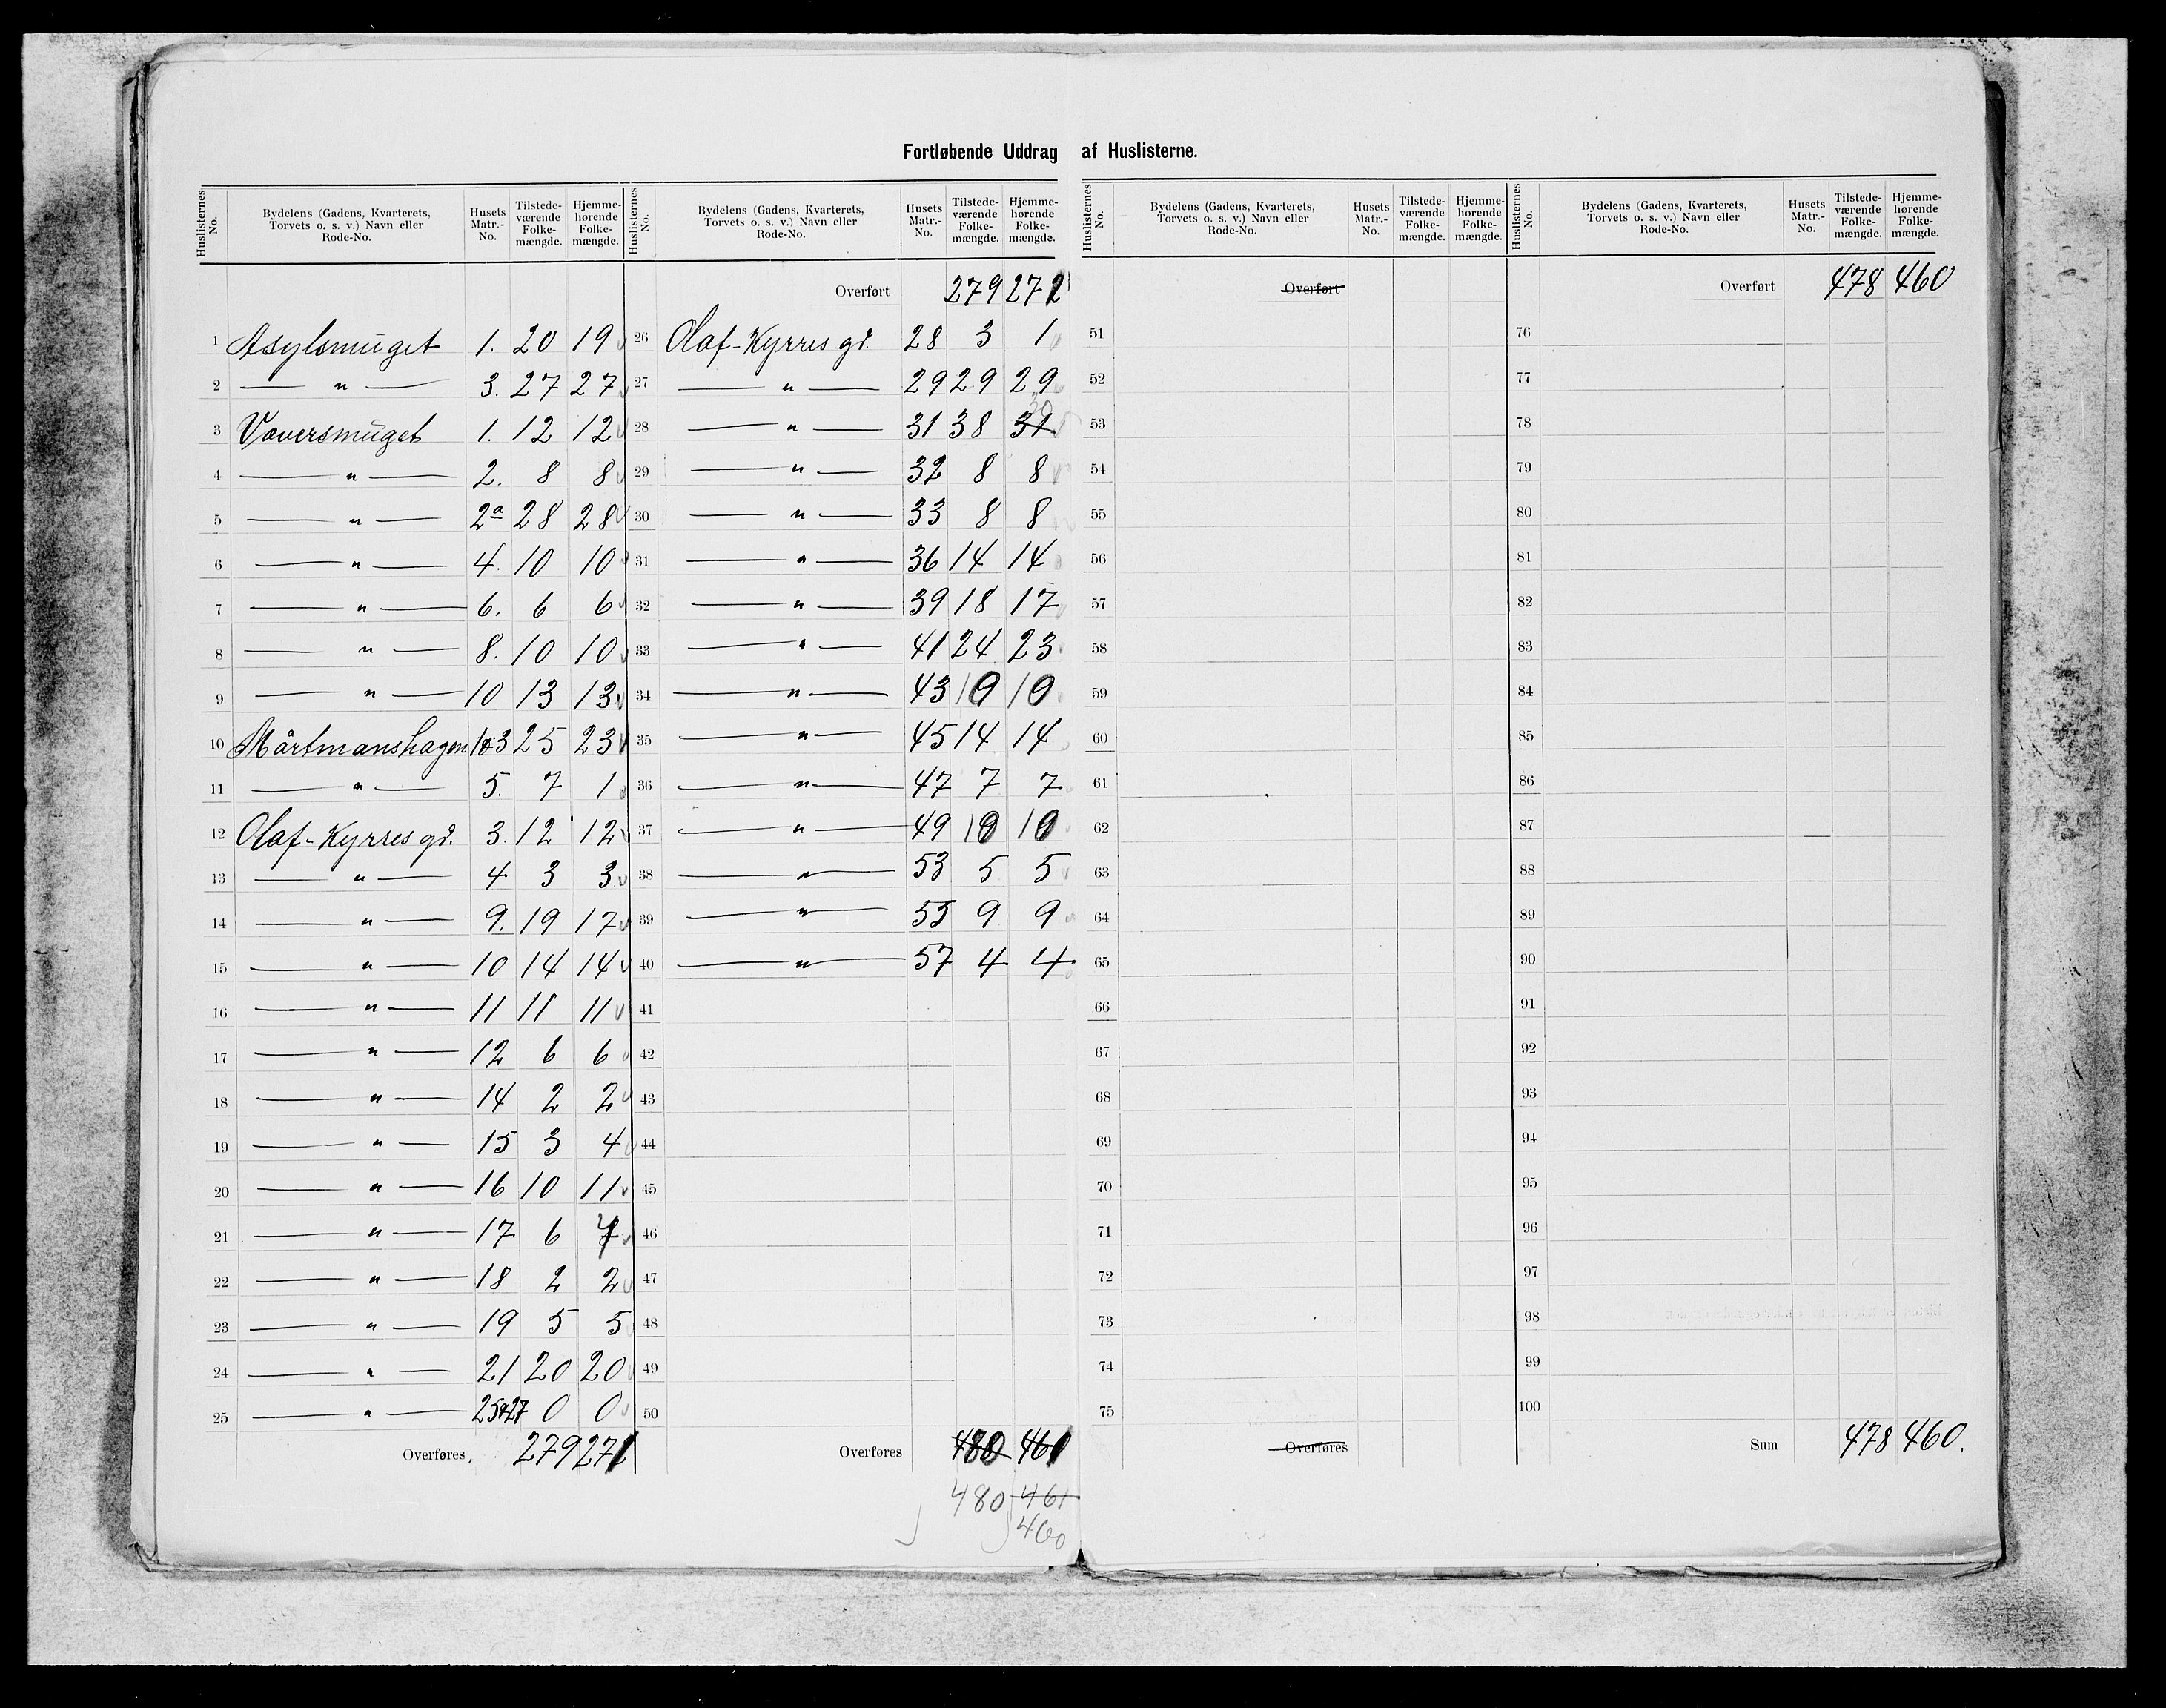 Fortløbende Uddrag af Huslisterne.
Huslisternes No. | Bydelens (Gadens, Kvarterets, Torvets o. s. v.) Navn eller Rode-No. | Husets Matr.-No. | Tilstedeværende Folkemængde. | Hjemmehørende Folkemængde.
1 Asylsmuget 1. 20 19
2 — " — 3. 27 27
3 Væversmuget 1. 12 12
4 — " — 2. 8 8
5 — " — 2a 28 28
6 — " — 4. 10 10
7 — " — 6. 6 6
8 — " — 8. 10 10
9 — " — 10 13 13
10 Mårtmanshagen 1&3 25 23
11 — " — 5. 7 1
12 Olaf-Kyrres gd. 3. 12 12
13 — " — 4 3 3
14 — " — 9. 19 17
15 — " — 10 14 14
16 — " — 11 11 11
17 — " — 12 6 6
18 — " — 14 2 2
19 — " — 15 3 4
20 — " — 16 10 11
21 — " — 17 6 7
22 — " — 18 2 2
23 — " — 19 5 5
24 — " — 21 20 20
25 — " — 25&27 0 0
Overføres 279 271
Huslisternes No. | Bydelens (Gadens, Kvarterets, Torvets o. s. v.) Navn eller Rode-No. | Husets Matr.-No. | Tilstedeværende Folkemængde. | Hjemmehørende Folkemængde.
Overført 279 271
26 Olaf-Kyrres gd. 28 3 1
27 — " — 29 29 29
30
28 — " — 31 38 31
29 — " — 32 8 8
30 — " — 33 8 8
31 — " — 36 14 14
32 — " — 39 18 17
33 — " — 41 24 23
34 — " — 43 10 10
35 — " — 45 14 14
36 — " — 47 7 7
37 — " — 49 10 10
38 — " — 53 5 5
39 — " — 55 9 9
40 — " — 57 4 4
41
42
43
44
45
46
47
48
49
50
Overføres 480 461
480 461
460
Huslisternes No. | Bydelens (Gadens, Kvarterets, Torvets o. s. v.) Navn eller Rode-No. | Husets Matr.-No. | Tilstedeværende Folkemængde. | Hjemmehørende Folkemængde.
Overført
51
52
53
54
55
56
57
58
59
60
61
62
63
64
65
66
67
68
69
70
71
72
73
74
75
Overføres
Huslisternes No. | Bydelens (Gadens, Kvarterets, Torvets o. s. v.) Navn eller Rode-No. | Husets Matr.-No. | Tilstedeværende Folkemængde. | Hjemmehørende Folkemængde.
Overført 478 460
76
77
78
79
80
81
82
83
84
85
86
87
88
89
90
91
92
93
94
95
96
97
98
99
100
Sum 478 460.